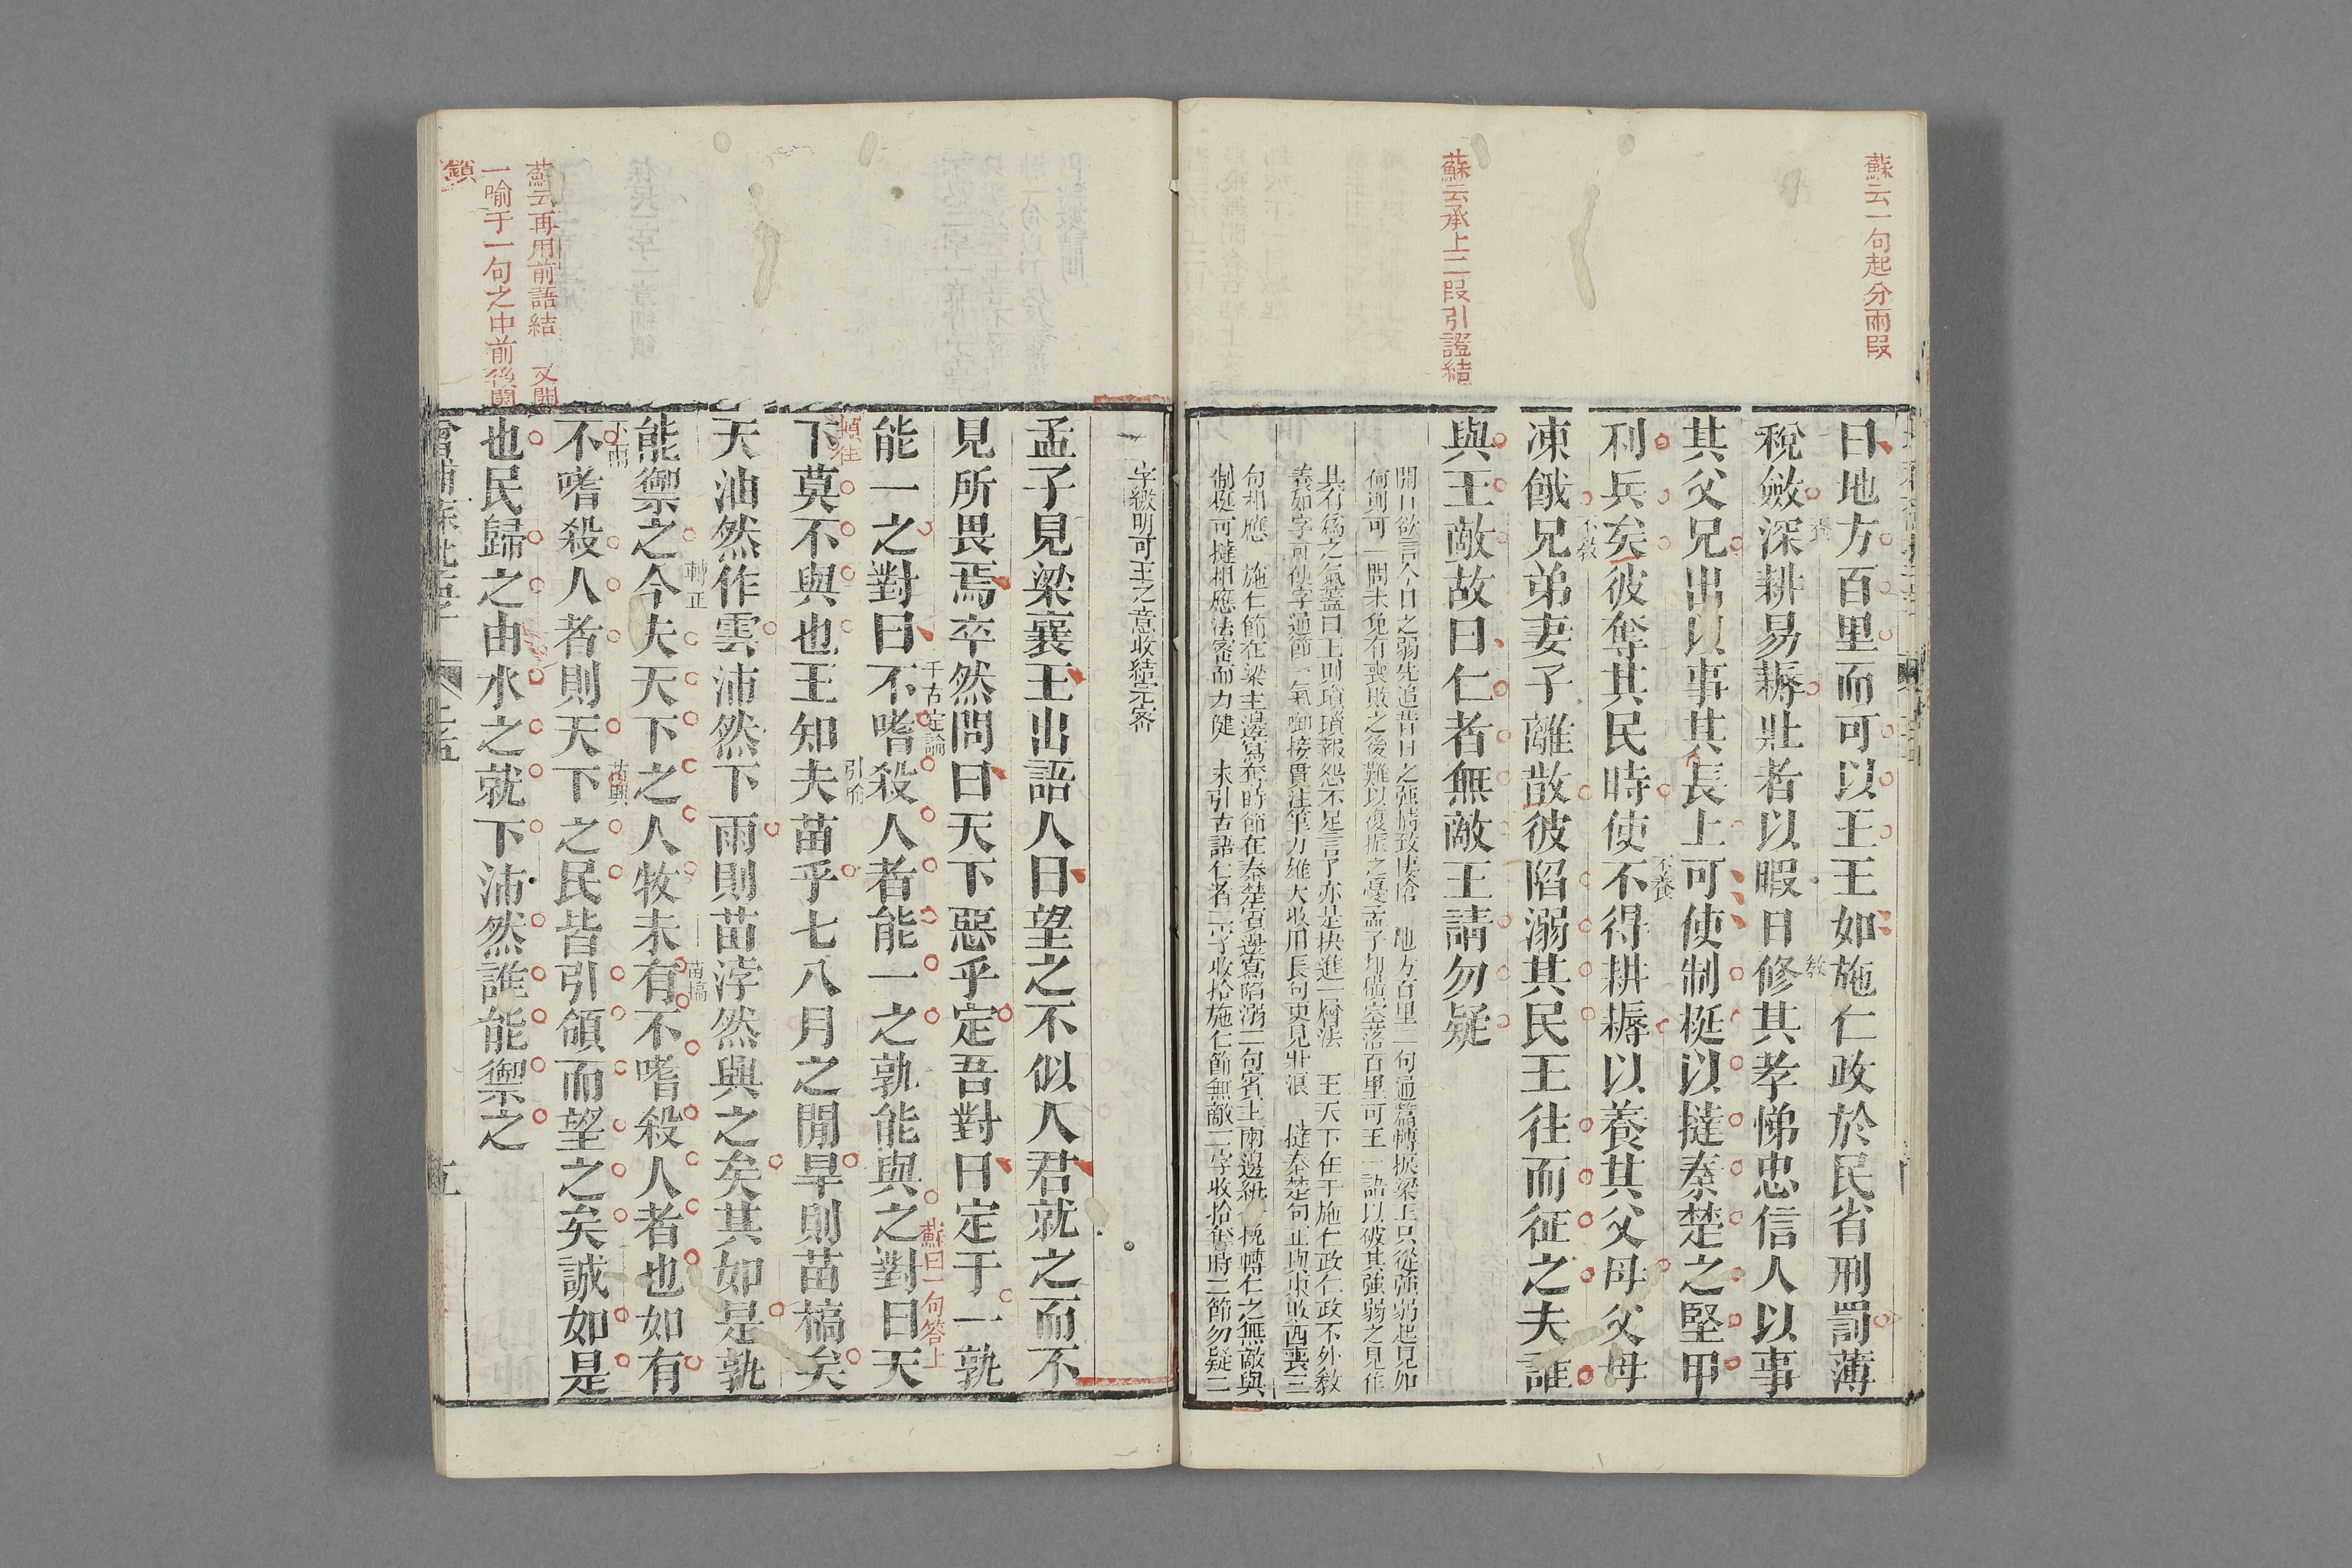 蘇云一句起分兩段
蘇云承上二段引證結
曰地方百里而可以王王如施仁政於民省刑罰薄
養
稅斂深耕易耨壯者以暇日修其孝悌忠信入以事
教
其父兄出以事其長上可使制梃以撻秦楚之堅甲
不養
利兵矣彼奪其民時使不得耕耨以養其父母父母
不教
凍餓兄弟妻子離散彼陷溺其民王往而征之夫誰
與王敵故曰仁者無敵王請勿疑
開口欲言今日之弱先追昔日之強 地方百里二句通篇轉捩梁王只從強弱起見如
何則可一問未免有喪敗之後難以復振之憂孟子 百里可王一語以破其強弱之見作
具有為之氣蓋曰王則瑣瑣報怨不足言了亦是抉進一層法 王天下在于施仁政仁政不外教
養如字可使字通節一氣啣接貫注筆力雄大收用長句更見壯浪 撻秦楚句正與東敗西喪三
句相應 施仁節在梁主邊寫奪時節在秦楚賓邊寫陷溺二句賓主兩邊 挽轉仁之無敵與
制梃可撻相應法密而力健 末引古語仁者二字收拾施仁節無敵二字收拾奪時二節勿疑二
字繳明可王之意收結完密
孟子見梁襄王出語人曰望之不似人君就之而不
見所畏焉卒然問曰天下惡乎定吾對曰定于一孰
千古定論
蘇曰一句答上
能一之對曰不嗜殺人者能一之孰能與之對曰天
頓住
引喻
下莫不與也王知夫苗乎七八月之間旱則苗槁矣
天油然作雲沛然下雨則苗浡然興之矣其如是孰
轉正
苗槁
能禦之今夫天下之人牧未有不嗜殺人者也如有
下雨
苗興
不嗜殺人者則天下之民皆引領而望之矣誠如是
也民歸之由水之就下沛然誰能禦之
蘇云再用前語結 又開
一喻于一句之中前後關
鎖